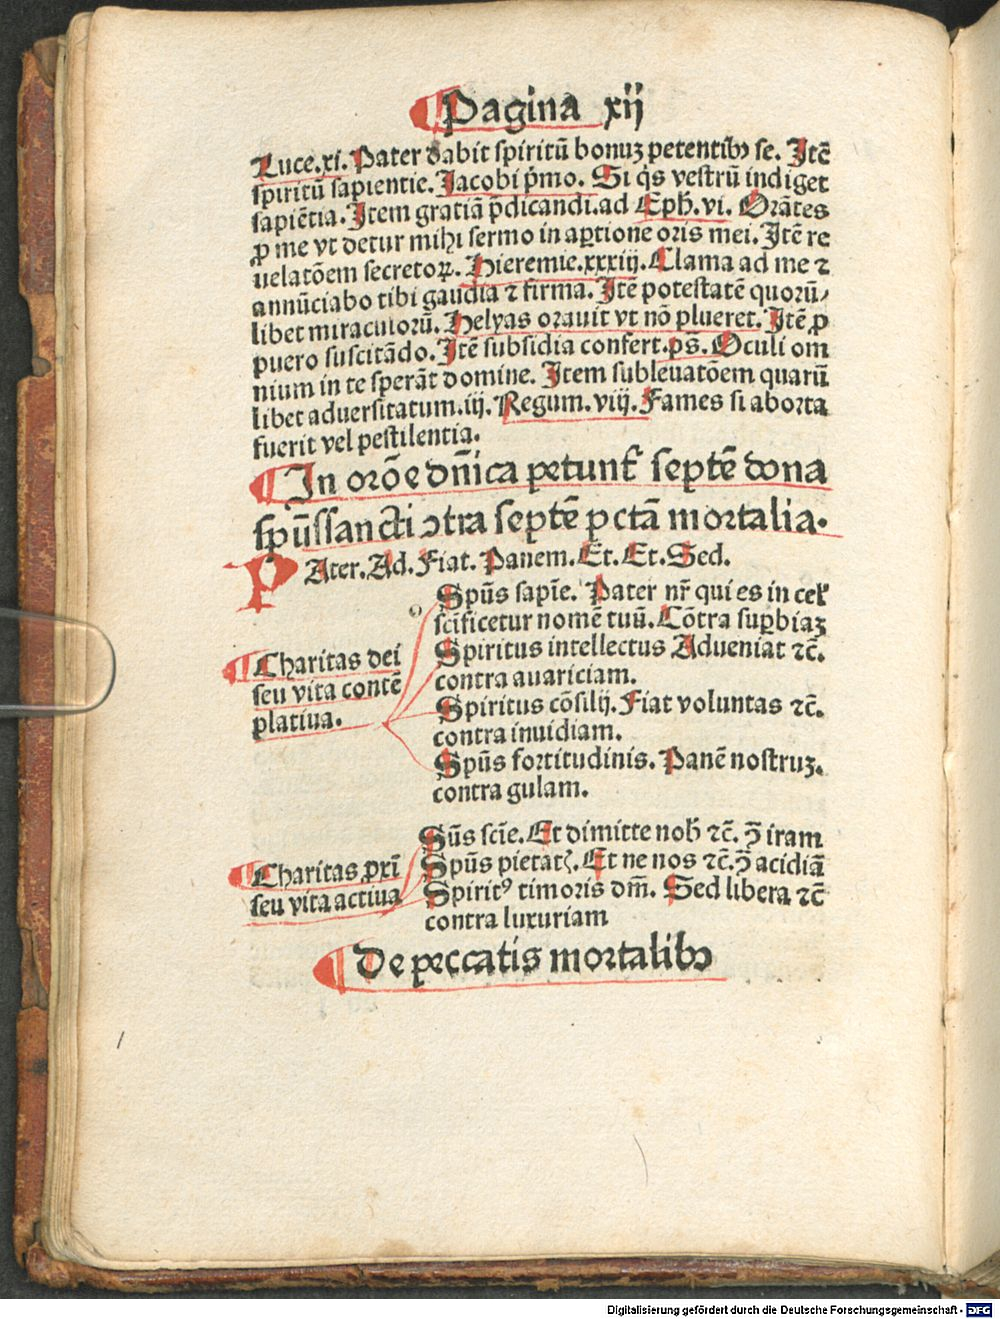 ¶ Pagina xij
Luce.xi. Pater dabit spiritū bonuꝫ petentibꝰ se. Itē
spiritū sapientie. Iacobi pͥmo. Si qͥs vestrū indiget
sapiētia. Item gratiā p̄dicandi.ad Eph̄.vi. Orātes
ꝓ me vt detur mihi sermo in aꝑtione oris mei. Itē re
uelatōem secretoꝝ. Hieremie.xxxiij. Clama ad me ⁊
annūciabo tibi gaudia ⁊ firma. Itē potestatē quorū/
libet miraculorū. Helyas orauit vt nō plueret. Itē ꝓ
puero suscitādo. Itē subsidia confert.ps̄. Oculi om
nium in te sperāt domine. Item subleuatōem quarū
libet aduersitatum.iij. Regum.viij. Fames si aborta
fuerit vel pestilentia.
¶ In orōe dn̄ica petunt᷑ septē dona
spūssancti ↄtra septē pctā mortalia.
PAter. Ad. Fiat. Panem. Et. Et. Sed.
Spūs sapīe. Pater nr̄ qui es in cel᷑
scīficetur nomē tuū. Cōtra suꝑbiaꝫ
¶ Charitas dei
seu vita contē
platiua.
Spiritus intellectus Adueniat ⁊c̄.
contra auariciam.
Spiritus cōsilij. Fiat voluntas ⁊c̄.
contra inuidiam.
Spūs fortitudinis. Panē nostruꝫ.
contra gulam.
¶ Charitas ꝓxī
seu vita actiua
Sūs scīe. Et dimitte nob̄ ⁊c̄. ↄ̄ iram
Spūs pietatꝭ. Et ne nos ⁊c̄. ↄ̄ acidiā
Spiritꝰ timoris dm̄. Sed libera ⁊c̄
contra luxuriam
¶ De peccatis mortalibꝰ
Digitalisierung gefördert durch die Deutsche Forschungsgemeinschaft - DFG